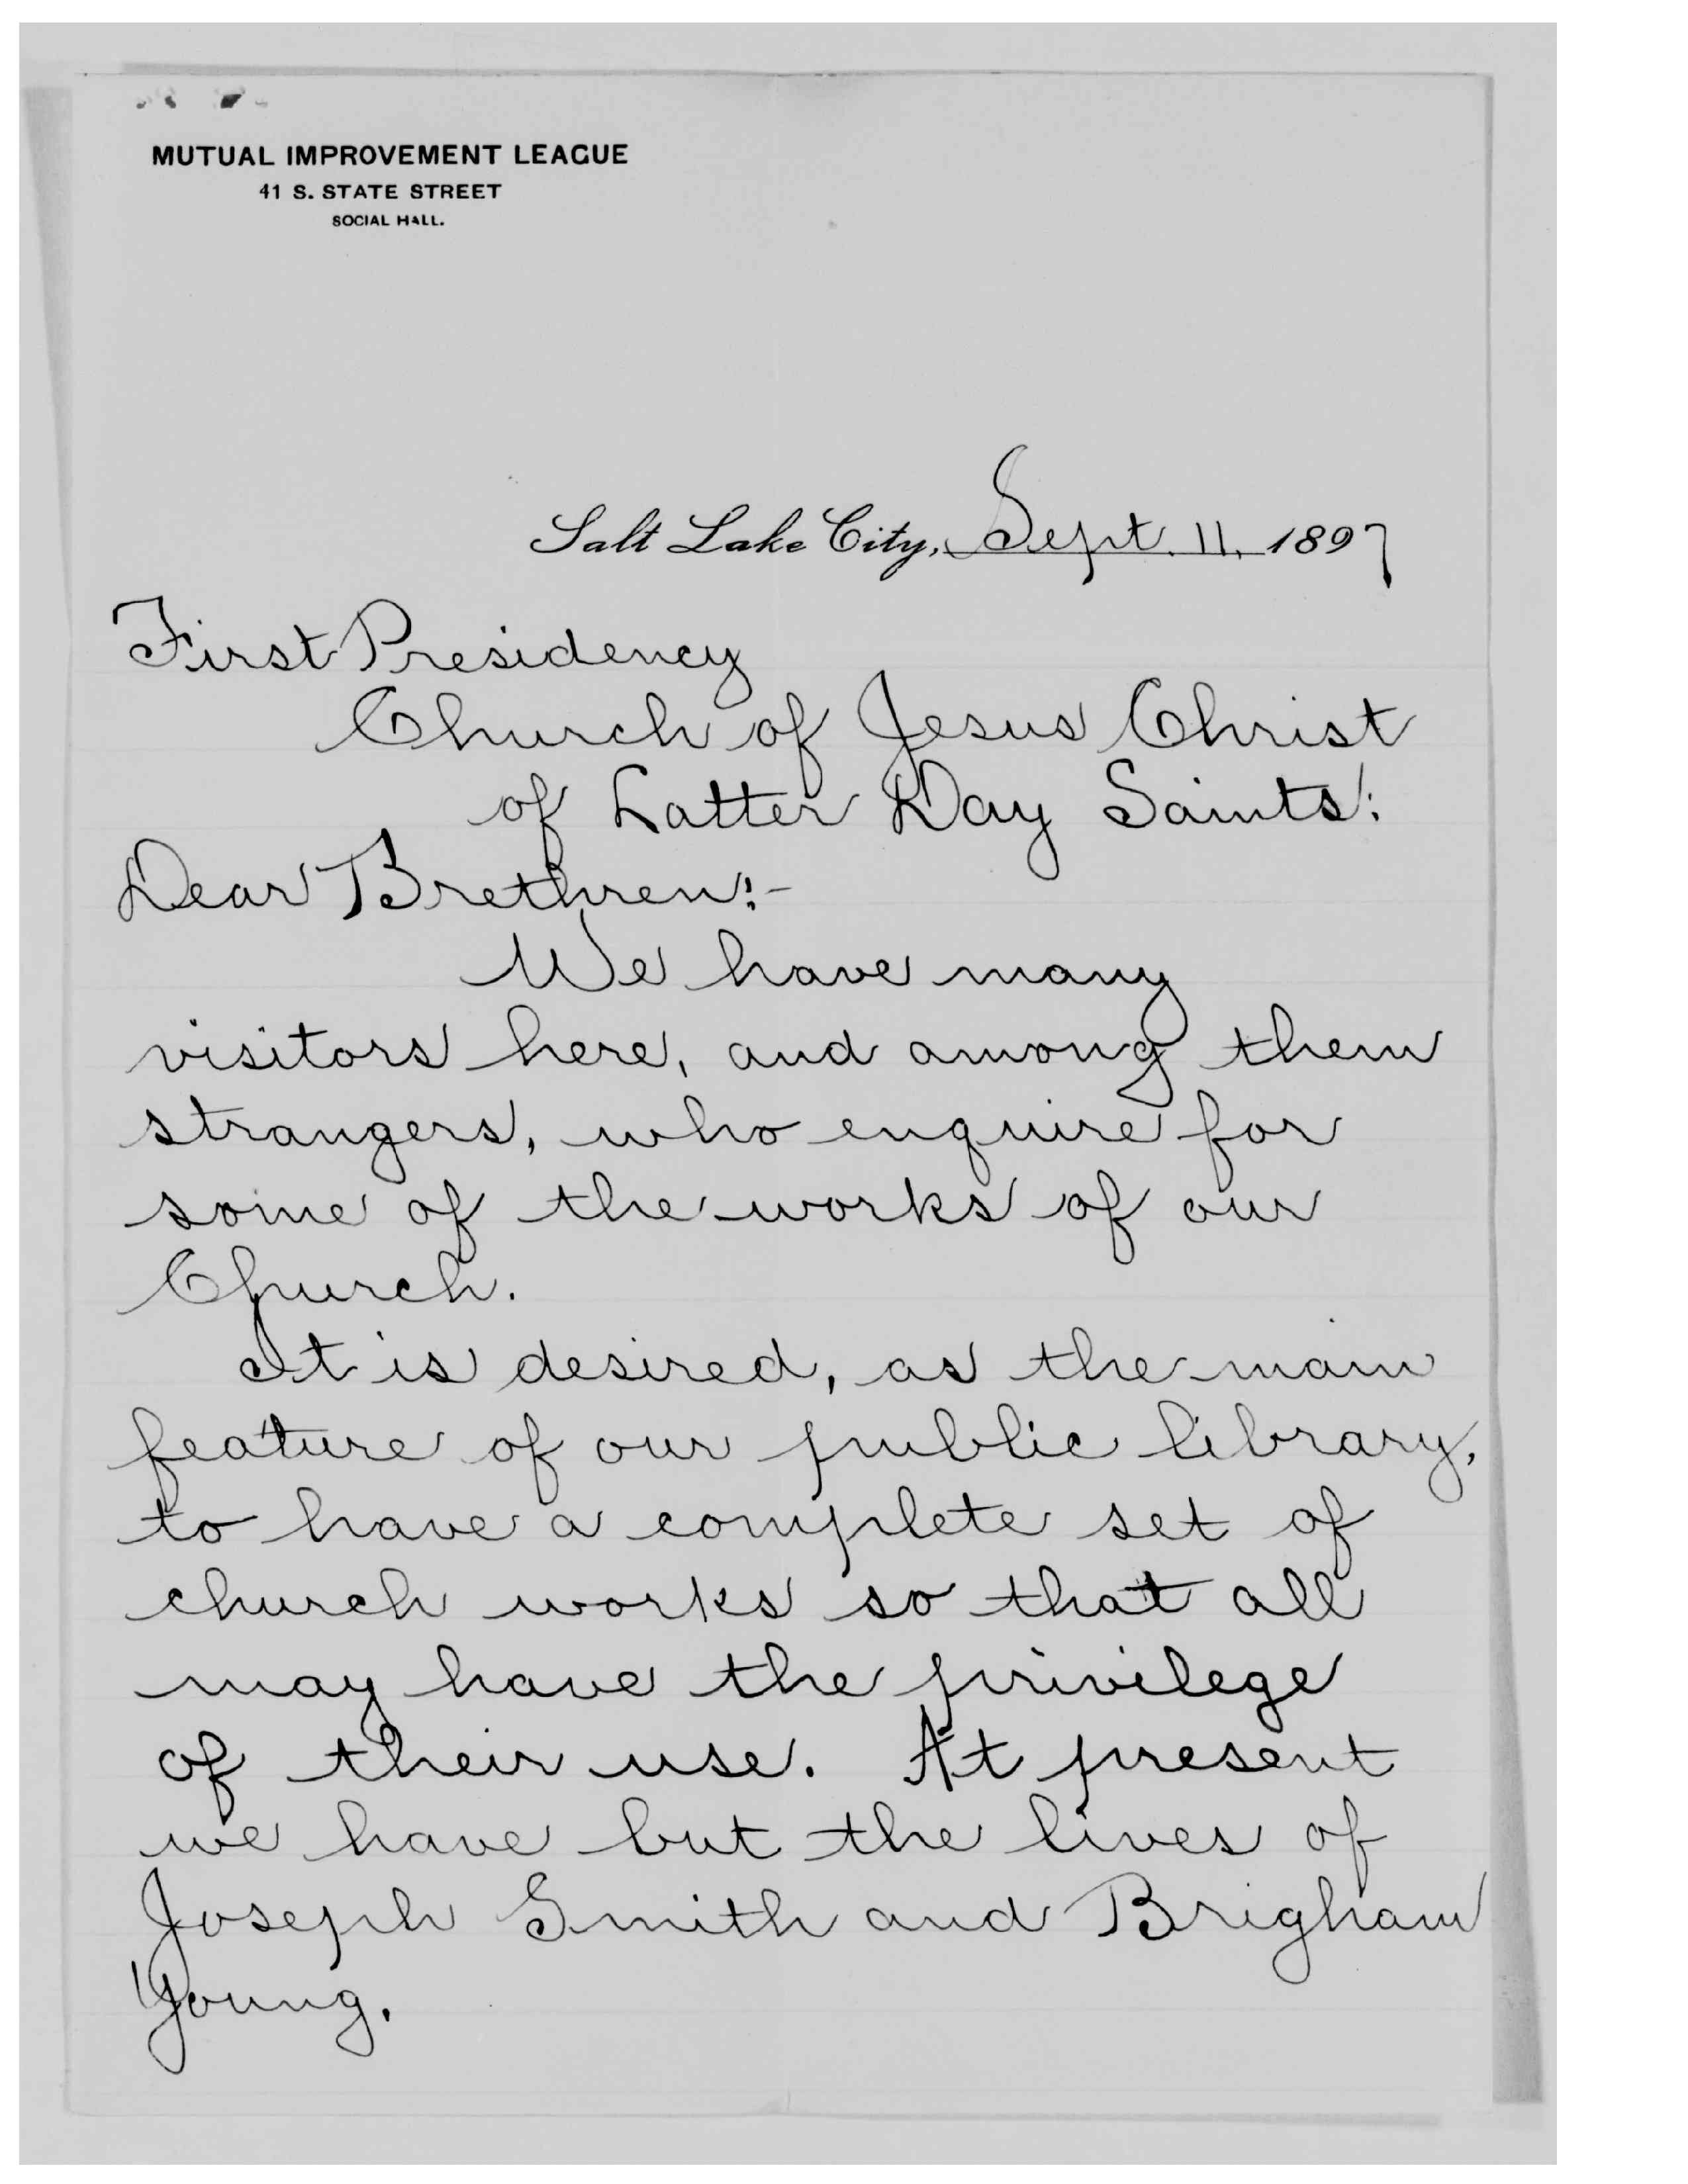 MUTUAL IMPROVEMENT LEAGUE
41 S. STATE STREET
SOCIAL HALL.
Salt Lake City, Sept. 11, 1897
First Presidency
Church of Jesus Christ
of Latter Day Saints:
Dear Brethren:-
We have many
visitors here, and among them
strangers, who enquire for
some of the works of our
Church.
It is desired, as the main
feature of our public library,
to have a complete set of
church works so that all
may have the privilege
of their use. At present
we have but the lives of
Joseph Smith and Brigham
Young.